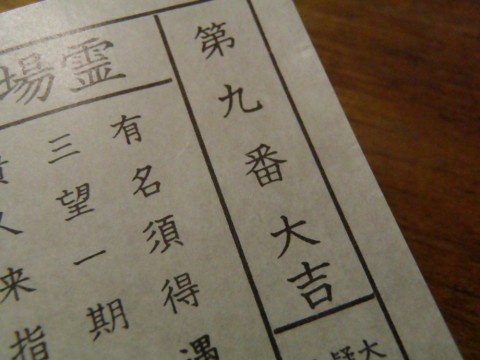 第九番大吉
霊場
有名須得遇
三望一期
人来指